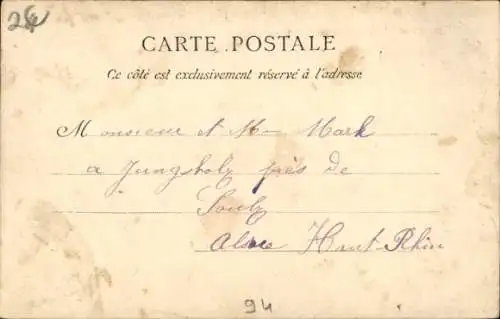 24
CARTE POSTALE
Ce côté est exclusivement réservé à l'adresse
Monsieur et Mme Mark
a Jungsholz près de
Soulz
Alsace Haut-Rhin
94